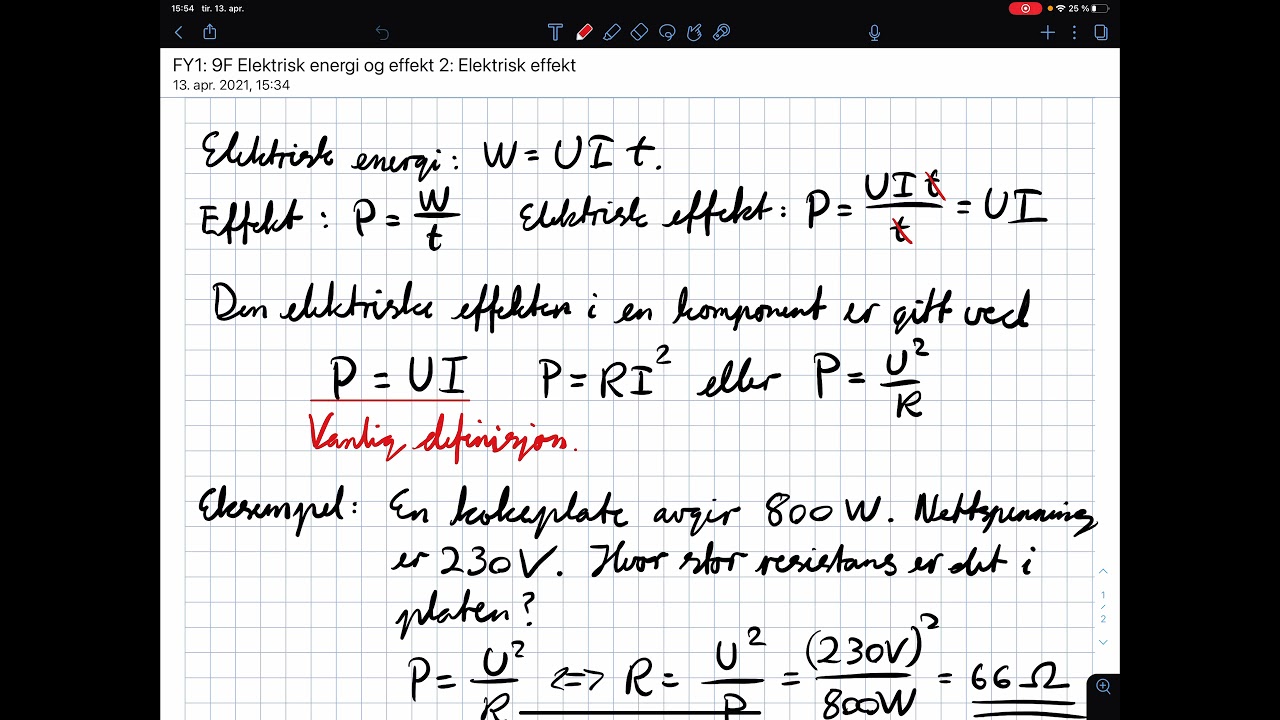 15:54 tir. 13. apr. 25 %
FY1: 9F Elektrisk energi og effekt 2: Elektrisk effekt
13. apr. 2021, 15:34
Elektrisk energi: W = UI t.
Effekt: P = W/t Elektrisk effekt: P = UI t/t = UI
Den elektriske effekten i en komponent er gitt ved
P = UI P = RI² eller P = U²/R
Vanlig definisjon.
Eksempel: En kokeplate avgir 800 W. Nettspenning
er 230V. Hvor stor resistans er det i
platen?
P = U²/R <=> R = U²/P = (230V)²/800W = 66 Ω
1
/
2